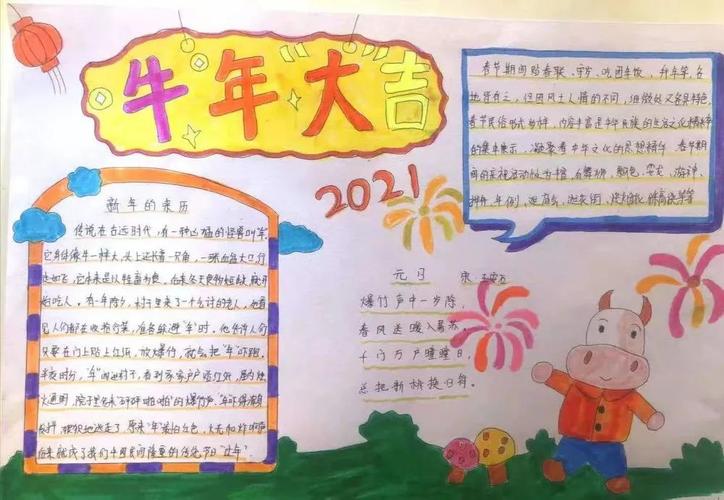 牛年大吉
2021
春节期间贴春联、守岁、吃团年饭、拜年等,各
地皆有之,但因风土人情的不同,细微处又各具特色,
春节民俗形式多样,内容丰富是中华民族的生活文化精粹
的集中展示
凝聚着中华文化的思想精华
春节期
间的庆祝活动极为
舞狮
游神
年例
新年的来历
传说在古远时代,有一种凶猛的怪兽叫"年"
它身体像牛一样大,头上还长着一只角,一张血盆大口行
走如飞
冬天食物
就开
始吃人。有一年除夕,村子里来了一个白讨的老人,他看
见人们都在收拾行装,准备躲避"年"时,他告诉人们
只要在门上贴上红纸,放爆竹,就会把"年"吓跑,
半夜时分,"年"闯进村子,看到家家户户贴红纸,屋内烛
火通明,院子里传来"砰砰啪啪"的爆竹声,"年"吓得浑身
发抖,狼狈地逃走了,原来"年"最怕红色、火光和炸响声
后来就成了我们中国民间隆重的传统节日"过年"
元日 宋 王安石
爆竹声中一岁除,
春风送暖入屠苏。
千门万户曈曈日,
总把新桃换旧符。